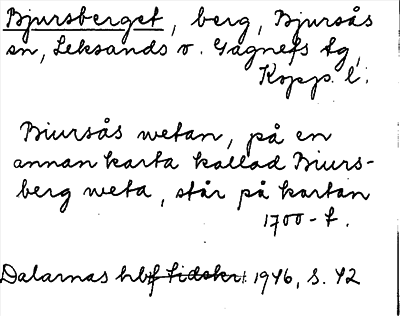 Bjursberget, berg, Bjursås
sn, Leksands o. Gagnefs tg,
Kopp. l.
Biursås wetan, på en
annan karta kallad Biurs-
berg weta, står på kartan
1700-t.
Dalarnas hbf tidskr. 1946, s. 42